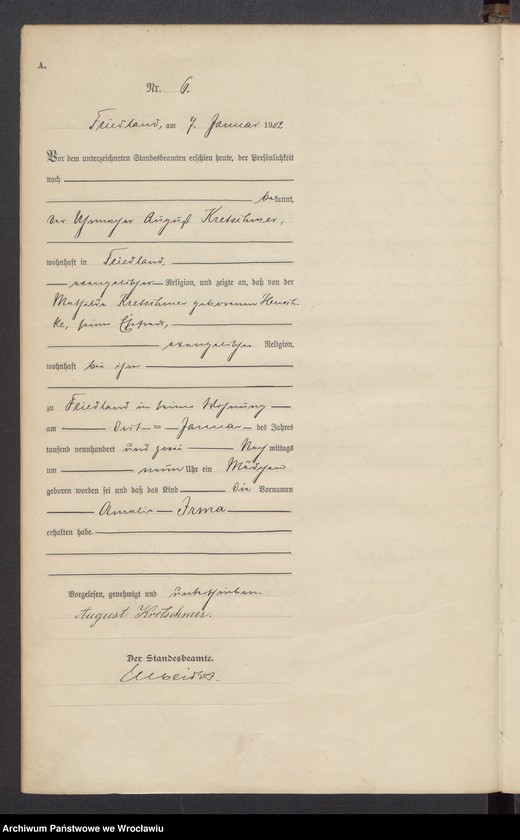 A.
Nr. 6.
Friedland, am 7. Januar 1902
Vor dem unterzeichneten Standesbeamten erschien heute, der Persönlichkeit
nach
bekannt,
der Uhrmacher August Kretschmer,
wohnhaft in Friedland,
evangelischer Religion, und zeigte an, daß von der
Mathilde Kretschmer geborenen
seiner Ehefrau,
evangelischer Religion,
wohnhaft bei ihm
zu Friedland in seiner Wohnung
am Januar des Jahres
tausend neunhundert und zwei Nachmittags
um neun Uhr ein Mädchen
geboren worden sei und daß das Kind die Vornamen
Amalie Irma
erhalten habe.
Vorgelesen, genehmigt und unterschrieben
August Kretschmer.
Der Standesbeamte.
Archiwum Państwowe we Wrocławiu